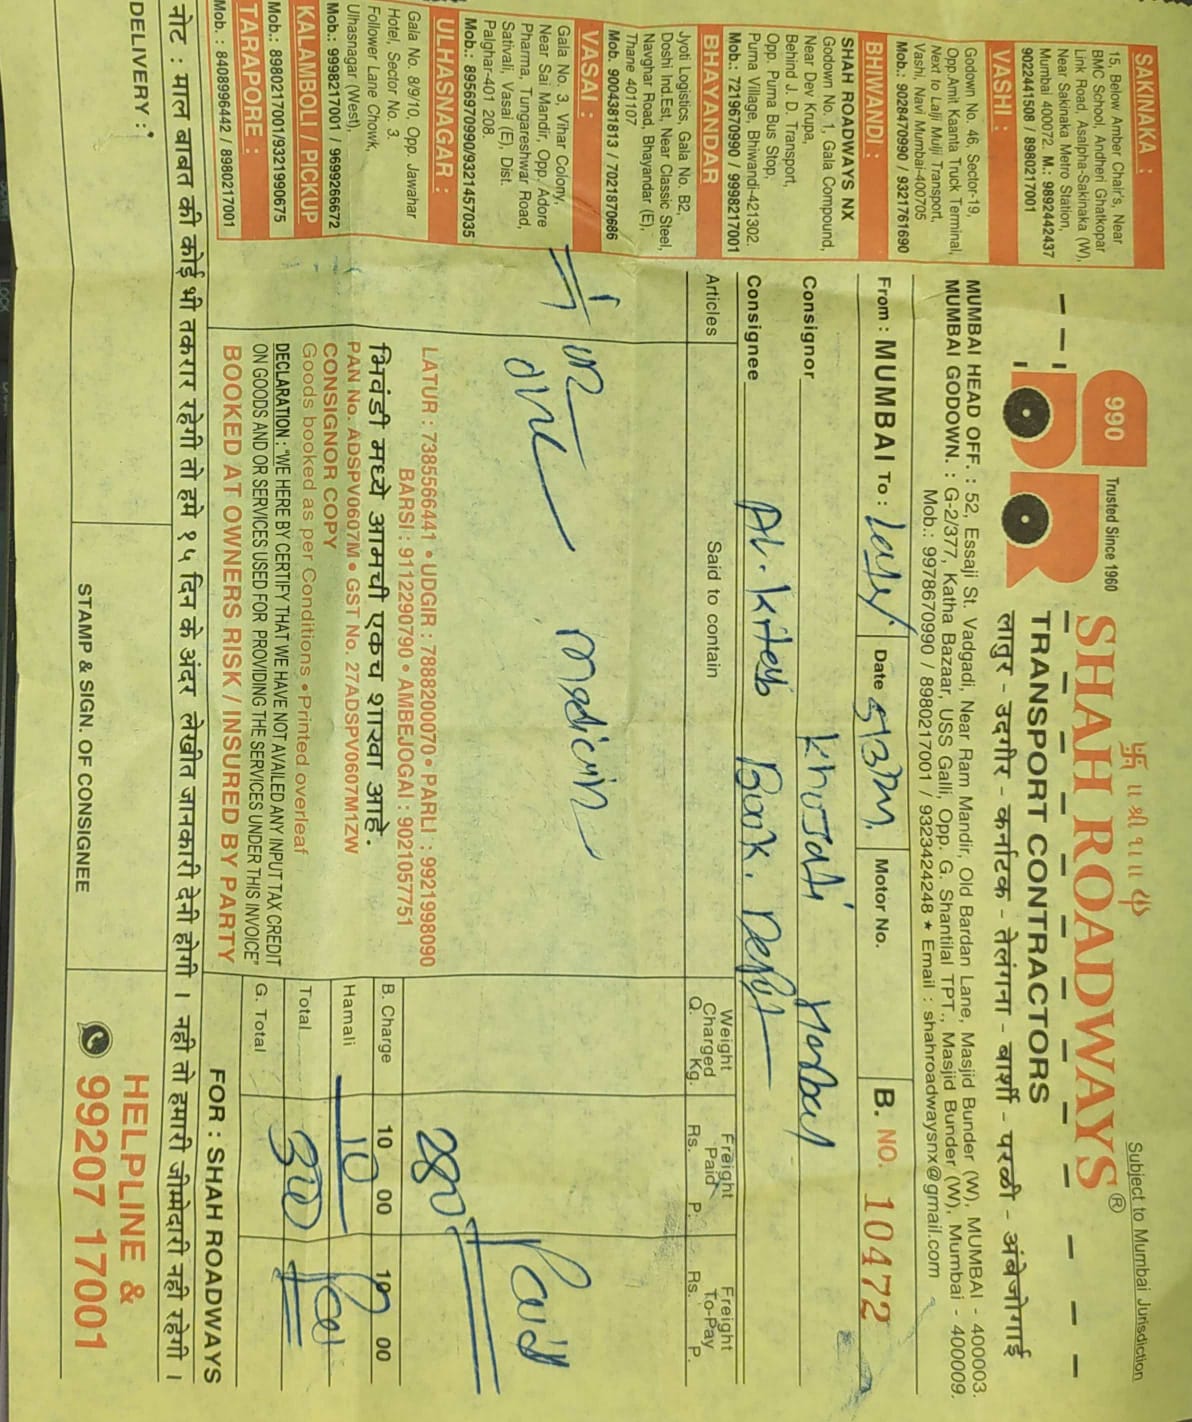 Subject to Mumbai Jurisdiction
卐 ॥ श्री १॥ ॥
990
Trusted Since 1960
SHAH ROADWAYS®
TRANSPORT CONTRACTORS
लातुर - उदगीर - कर्नाटक - तेलंगना - बार्शी - परळी - अंबेजोगाई
MUMBAI HEAD OFF. : 52, Essaji St. Vadgadi, Near Ram Mandir, Old Bardan Lane, Masjid Bunder (W), MUMBAI - 400003.
MUMBAI GODOWN. : G-2/377, Katha Bazaar, USS Galli, Opp. G. Shantilal TPT., Masjid Bunder (W), Mumbai - 400009.
Mob.: 9978670990 / 8980217001 / 9323424248 ★ Email : shahroadwaysnx@gmail.com
SAKINAKA :
15, Below Amber Chair's, Near
BMC School, Andheri Ghatkopar
Link Road, Asalpha-Sakinaka (W),
Near Sakinaka Metro Station,
Mumbai 400072. M.: 9892442437
9022441508 / 8980217001
VASHI :
Godown No. 46, Sector-19,
Opp.Amit Kaanta Truck Terminal,
Next to Lalji Mulji Transport,
Vashi, Navi Mumbai-400705
Mob.: 9028470990 / 9321761690
BHIWANDI :
SHAH ROADWAYS NX
Godown No. 1, Gala Compound,
Near Dev Krupa,
Behind J. D. Transport,
Opp. Purna Bus Stop,
Purna Village, Bhiwandi-421302.
Mob.: 7219670990 / 9998217001
BHAYANDAR
Jyoti Logistics, Gala No. B2,
Doshi Ind.Est, Near Classic Steel,
Navghar Road, Bhayandar (E),
Thane 401107
Mob. 9004381813 / 7021870686
VASAI :
Gala No. 3, Vihar Colony,
Near Sai Mandir, Opp. Adore
Pharma, Tungareshvar Road,
Sativali, Vasai (E), Dist.
Palghar-401 208.
Mob.: 8956970990/9321457035
ULHASNAGAR :
Gala No. 8/9/10, Opp. Jawahar
Hotel, Sector No. 3.
Follower Lane Chowk,
Ulhasnagar (West),
Mob.: 9998217001 / 969926672
KALAMBOLI / PICKUP
Mob.: 8980217001/9321990675
TARAPORE :
Mob. : 8408996442 / 8980217001
From : MUMBAI To : Latur Date Motor No. B. NO. 10472
Consignor
Consignee Al. Kitab Book. Depot
Articles Said to contain Weight Charged Q. Kg. Freight Paid Rs. P. Freight To-Pay Rs. P.
medicin
280 Paid
LATUR : 7385566441 • UDGIR : 7888200070 • PARLI : 9921998090
BARSI : 9112290790 • AMBEJOGAI : 9021057751
भिवंडी मध्ये आमची एकच शाखा आहे.
PAN No. ADSPV0607M • GST No. 27ADSPV0607M1ZW
CONSIGNOR COPY
Goods booked as per Conditions • Printed overleaf
DECLARATION : "WE HERE BY CERTIFY THAT WE HAVE NOT AVAILED ANY INPUT TAX CREDIT
ON GOODS AND OR SERVICES USED FOR PROVIDING THE SERVICES UNDER THIS INVOICE"
BOOKED AT OWNERS RISK / INSURED BY PARTY
B. Charge 10 00 10 00
Hamali 10
Total 300
G. Total
FOR : SHAH ROADWAYS
नोट : माल बाबत की कोई भी तकरार रहेगी तो हमे १५ दिन के अंदर लेखीत जानकारी देनी होगी । नही तो हमारी जीम्मेदारी नही रहेगी ।
DELIVERY :
STAMP & SIGN. OF CONSIGNEE
HELPLINE &
99207 17001